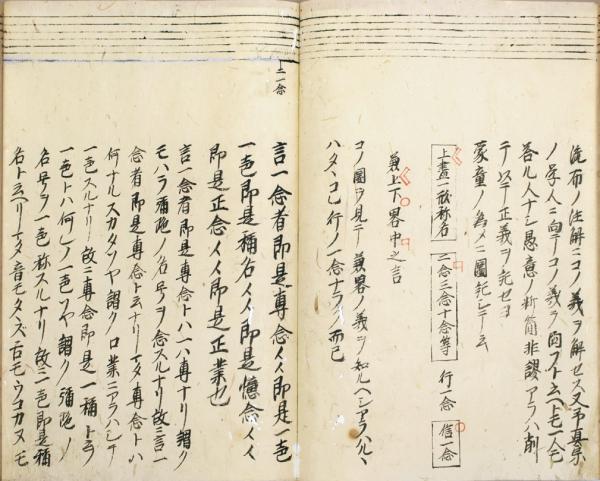 流布ノ注解ニコノ義ヲ解セス又吊真宗
ノ学人ニ向テコノ義ヲ問フト云ヘトモ一人モ
答ル人ナシ愚意ノ新簡非謬アラハ削
テ以テ正義ヲ記セヨ
蒙童ノ為メニ圖記シテ云
上盡一形称名 二念三念十念等 行一念 信一念
兼上下畧中之言
コノ圖ヲ見テ兼畧ノ義ヲ知ルヘシアラハルヽ
ハタヽコレ行ノ一念ナラクノ而已
十一念
言一念者即是專念イイ即是一声
一声即是稱名イイ即是憶念イイ
即是正念イイ即是正業也
言一念者即是專念トハ一ハ專ナリ謂ク
モハラ彌陀ノ名号ヲ念スルナリ故ニ言一
念者即是專念ト云ナリーータ專念トハ
何ナルスカタソヤ謂ク口業ニアラハシテ
一声スルナリ故ニ專念即是一稱ト云
一声トハ何レノ一声ソヤ謂ク彌陀ノ
名号ヲ一声称スルナリ故ニ一声即是稱
名ト云ヘリータ音モタス舌モウコカヌモ